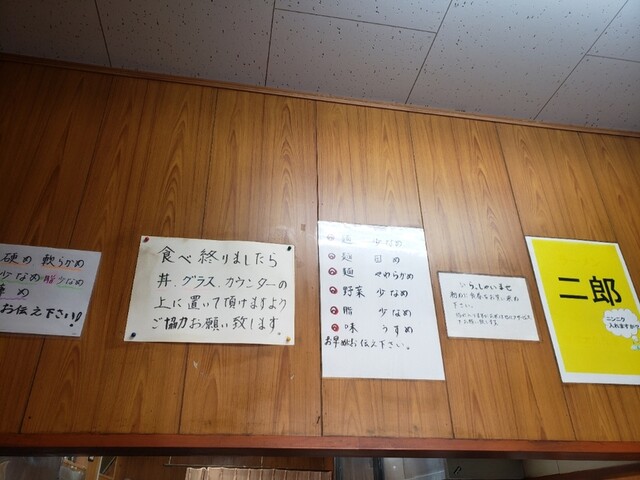 硬め 軟らかめ
少なめ 脂少なめ
お伝え下さい!!
食べ終りましたら
丼、グラス、カウンターの
上に置いて頂けますよう
ご協力お願い致します
麺 少なめ
麺 固め
麺 やわらかめ
野菜 少なめ
脂 少なめ
味 うすめ
お早めにお伝え下さい。
いらっしゃいませ
二郎
ニンニク
入れますか?